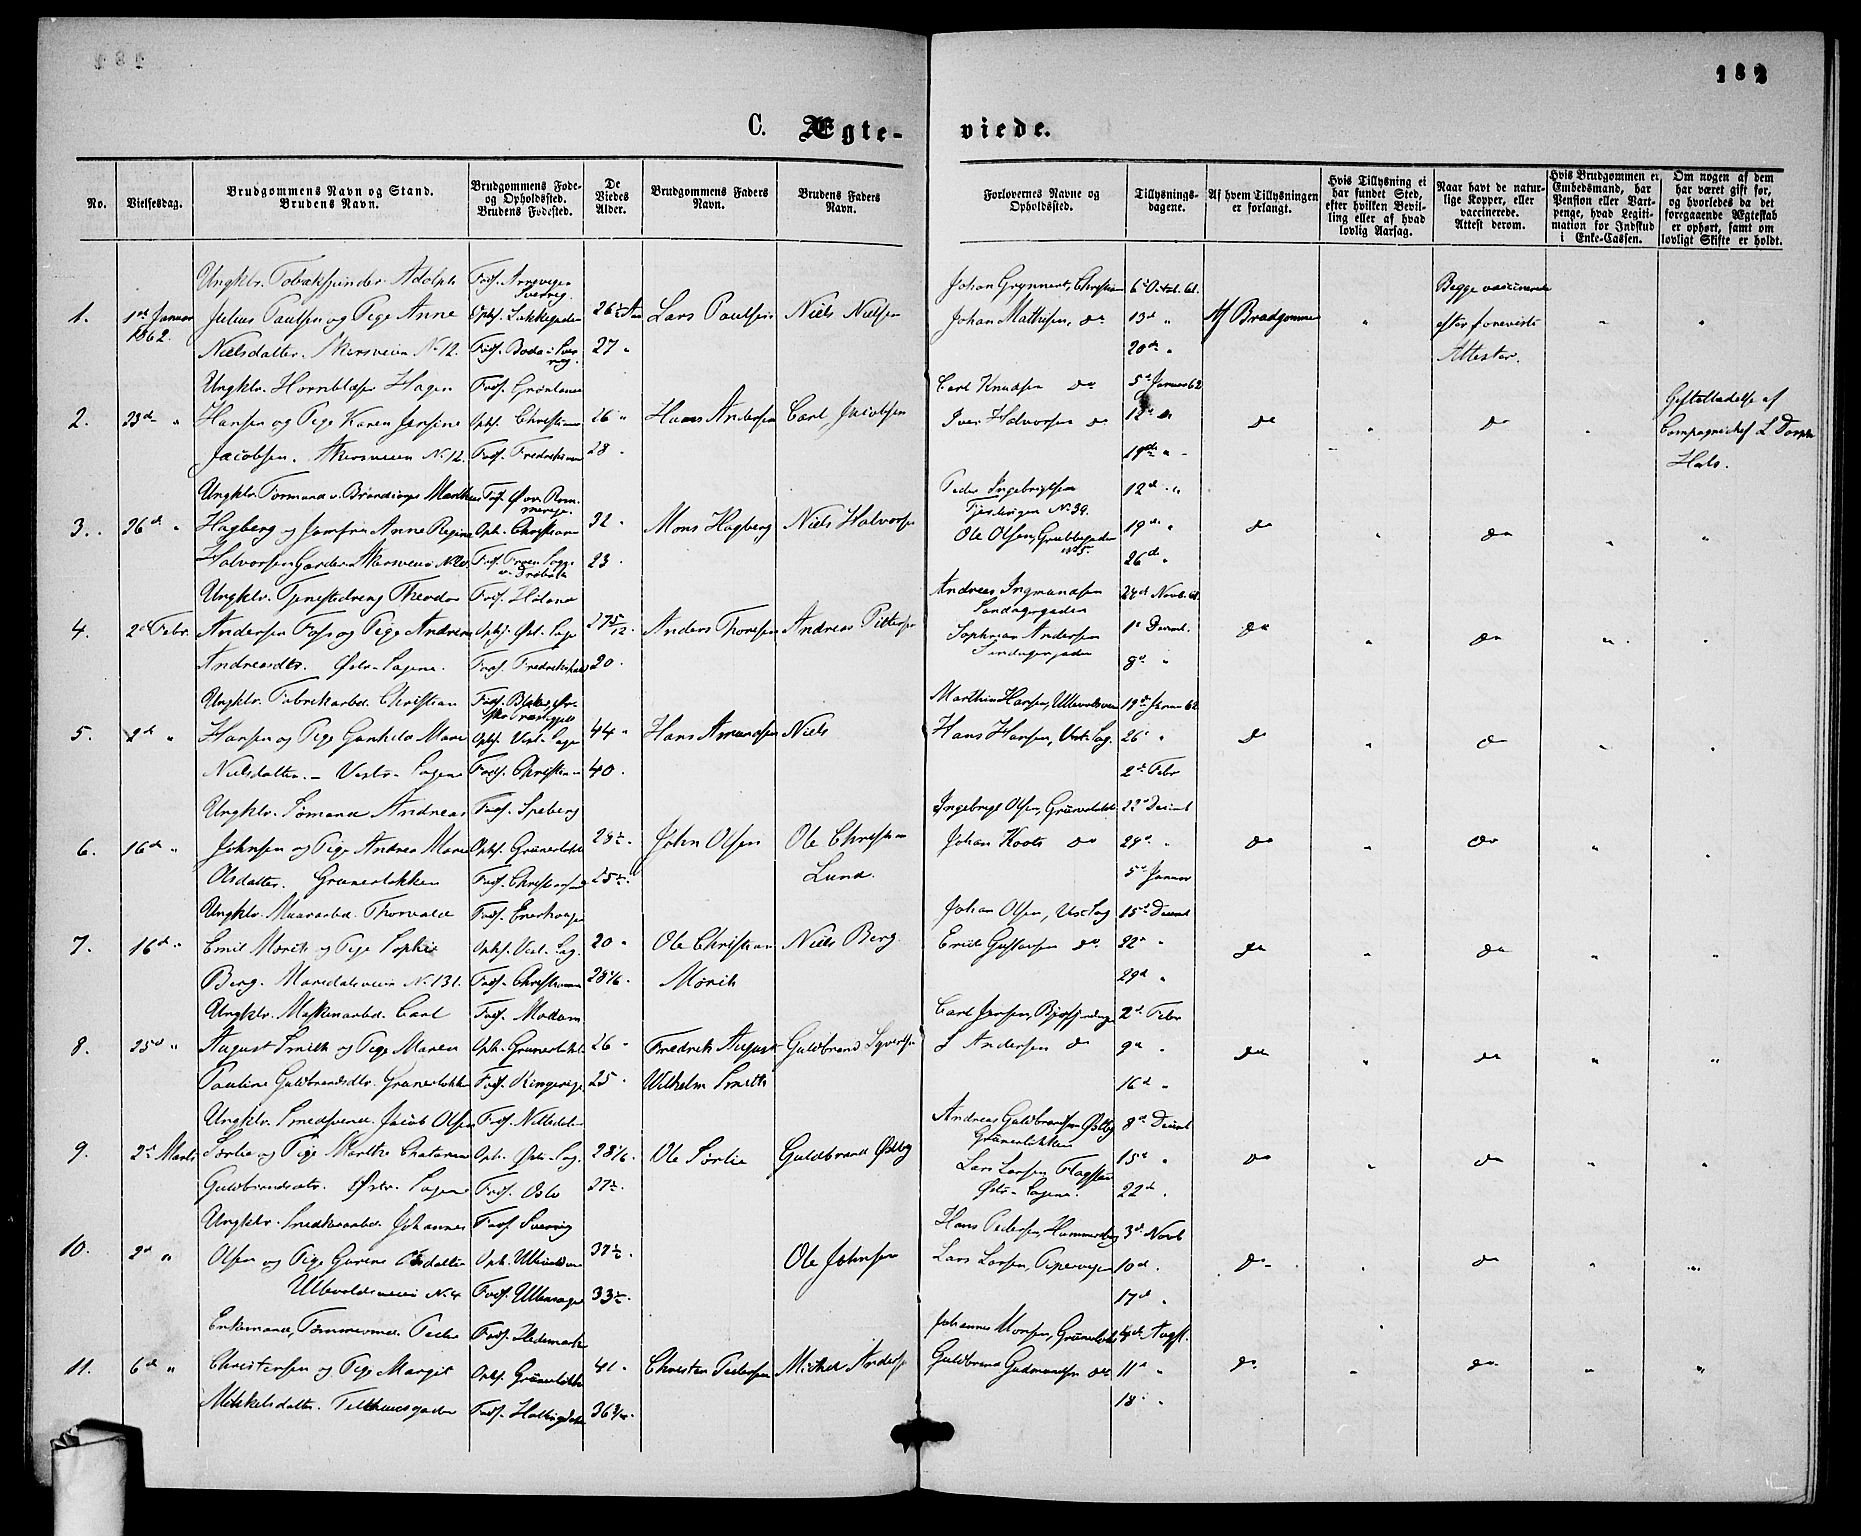 182
C. Ægteviede.
No.
Vielsesdag.
Brudgommens Navn og Stand.
Brudens Navn.
Brudgommens Føde-
og Opholdssted.
Brudens Fødested.
De
Viedes
Alder.
Brudgommens Faders
Navn.
Brudens Faders
Navn.
Forlovernes Navne og
Opholdssted.
Tillysnings-
dagene.
Af hvem Tillysningen
er forlangt.
Hvis Tillysning ei
har fundet Sted,
efter hvilken Bevil-
ling eller af hvad
lovlig Aarsag.
Naar havt de natur-
lige Kopper, eller
vaccinerede.
Attest derom.
Hvis Brudgommen er
Embedsmand, har
Pension eller Vart-
penge, hvad Legiti-
mation for Indskud
i Enke-Cassen.
Om nogen af dem
har været gift før,
og hvorledes da det
foregaaende Ægteskab
er ophørt, samt om
lovligt Skifte er holdt.
1. 1st Januar 1862.
Ungklr. Tobaksspinder Adolph
Julius Paulsen og Pige Anne
Nielsdatter. Akersveien No 12.
26½ Aar
27 "
Lars Paulsen
Niels Nielsen
Johan Mathisen, do
13d "
20de "
Af Brudgommen
Begge vaccinerede
efter foreviste
Attester.
2. 23de "
Ungklr. Hornblæser Hagen
Hansen og Pige Karen Jensine
Jacobsen. Akersveien No 12.
Fods. Grønland
Oph. Christiania
26 "
28 "
Hans Andersen
Carl Jacobsen
Carl Knudsen do
Iver Halvorsen do
5d Januar 62
12d "
19de "
do
do
Giftetilladelse af
Compagnichef L
Hals.
3. 26d "
Hagberg og Jomfru Anne Regine
Halvorsen
Oph. Christiania
32 "
23 "
Mons Hagberg
Niels Halvorsen
Peder Ingebrigtsen
No 39.
Ole Olsen, Grubbegaden
No 5.
12d "
19de "
26de "
do
do
4. 2d Febr.
Ungklr. Tjenestedreng Theodor
Andersen Foss og Pige Andrea
Andreasdtr. Østr. Sagene.
Fods. Høland
Fods. Fredrikshald
27 5/12
20.
Anders Thoresen
Andreas Pettersen
Andreas Ingmandsen
Andersen
24d Novb. 61
1d Decmb.
8d "
do
do
5. 2d "
Ungklr. Fabrikarbd. Christian
Hansen og Pige Gunhild Marie
Nielsdatter. - Vestr. Sagene
Fods. Christiania
44 "
40.
Hans Amundsen
Niels
Marthin Hansen, Ullevoldsveien
Hans Hansen, Vest. Sag.
19de Januar 62
26d "
2de Febr
do
do
6. 16d "
Ungklr. Sømand Andreas
Johnsen og Pige Andrea Marie
Olsdatter. Grünerløkken
Oph. Grünerløkk
Fods. Christiania
28½
25½
John Olsen
Ole Christian
Lund.
Ingebrigt Olsen, Grünerløkk
Johan Koots do
22d Decmb
29d "
5d Januar
do
do
7. 16d "
Ungklr. Murarbd. Thorvald
Emil Mørch og Pige Sophie
Berg. Maridalsveien No 131.
Fods. Enerhaugen
Oph. Vest. Sag.
Fods. Christiania
20 "
28 1/6
Ole Christian
Mørch
Niels Berg.
Johan Olsen, Vest. Sag
Erik Gustavsen do
15d Decmb
22d "
29d "
do
do
8. 25d "
Ungklr. Maskinarbd. Carl
August Smith og Pige Maren
Pauline Guldbrandsdtr. Grünerløkk
Fods. Modum
Oph. Grünerløkk
Fods. Ringerige
26 "
25 "
Fredrik August
Wilhelm Smith
Guldbrand Syversen
Carl Jensen,
L Andersen do
2d Febr
9d "
16d "
do
do
9. 2d Marts
Ungklr. Smedsvend Jacob Olsen
Sørlie og Pige Marthe Chatarine
Guldbrandsdtr. Østr. Sagene
Fods. Nittedalen
Oph. Østr. Sag.
Fods. Oslo
28 1/6
27½
Ole Sørlie
Guldbrand Østby
Andreas Guldbrandsen Østby
Grünerløkken
Lars Larsen Flagstad
Østr. Sagene.
8d Decmb
15d "
22d "
do
do
10. 2d "
Ungklr. Snedkerarbd. Johannes
Olsen og Pige Gurine Olsdatter
Ullevoldsveien No. 4
Fods. Sverrig
Oph. Ullevoldsv
Fods. Ullensager
37½
33½
Ole Johnsen
Hans Pedersen, Hammersborg
Lars Larsen, Pipervigen
3d Novb
10d "
17d "
do
do
11. 6d "
Enkemand, Tømmermd. Peder
Christensen og Pige Margit
Mikkelsdatter.
Fods. Hedemarken
Oph. Grünerløkk
Fods. Hallingdal
41 "
Christen Pedersen
Mikkel Anders
Johannes Monsen, Grünerløkk
Guldbrand Gudmundsen do
4de Augst.
11d "
18 "
do
do